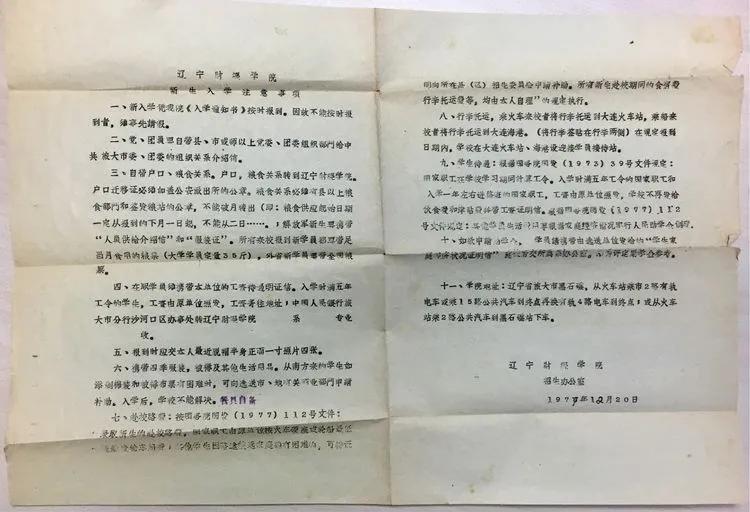 辽宁财经学院
新生入学注意事项
一、新入学凭我院《入学通知书》按时报到。因故不能按时报
到者，须事先请假。
二、党、团员应自带县、市或师以上党委、团委组织部门给中
共旅大市委、团委的组织关系介绍信。
三、自带户口、粮食关系。户口，粮食关系转到辽宁财经学院。
户口迁移证必须加盖公安派出所的公章。粮食关系必须有县以上粮
食部门和签发粮站的公章，不能破月转出（即：粮食供应起始日期
一定从报到的下月一日起，不能从二日……。；解放军新生要携带
“人员供给介绍信”和“服装证”。所有来校报到新学员都要带足
当月食用的粮票（大学学员定量35斤），外省新学员要带全国粮
票。
四、在职学员须携带本单位的工资待遇证明信。入学时满五年
工令的学生，工资由原单位照发，工资寄往地址：中国人民银行旅
大市分行沙河口区办事处转辽宁财经学院 系 专业
收。
五、报到时应交本人最近脱帽半身正面一寸照片四张。
六、携带四季服装，被褥及其他生活用品。从南方来的学生如
添制棉装和被褥布票有困难时，可向选送市、地有关商业部门申请
补助。入学后，学校不能解决。餐具自备
七、赴校路费：按国务院国发（1977）112号文件：
录取新生的赴校路费，国家职工由原单位按火车硬座或轮船最低
明向所在县（区）招生委员会申请补助。所有新生赴校期间的食宿费
行李托运费等，均由本人自理”的规定执行。
八、行李托运，乘火车来校者将行李托运到大连火车站，乘船来
校者将行李托运到大连海港。（将行李签贴在行李两侧）在规定报到
日期内，学校在大连火车站、海港设迎接学员接待站。
九、学生待遇：根据国务院国发（1973）39号文件规定：
国家职工在学校学习期间计算工令。入学时满五年工令的国家职工和
入学一年左右进修班的国家职工，工资由原单位照发，学校不再发给
伙食费和津贴费并带工资证明信。根据国务院国发（1977）112
号文件规定：其他学员生活费用要根据家庭经济情况实行人民助学金制度。
十、如欲申请助学金，学员须携带由选送单位发给的“学生家
庭经济状况证明信”
十一、学院地址：辽宁省旅大市黑石礁。从火车站乘市2路有轨
电车或乘15路公共汽车到终点再换有轨4路电车到终点；或从火车
站乘2路公共汽车到黑石礁站下车。
辽宁财经学院
招生办公室
1977年12月20日